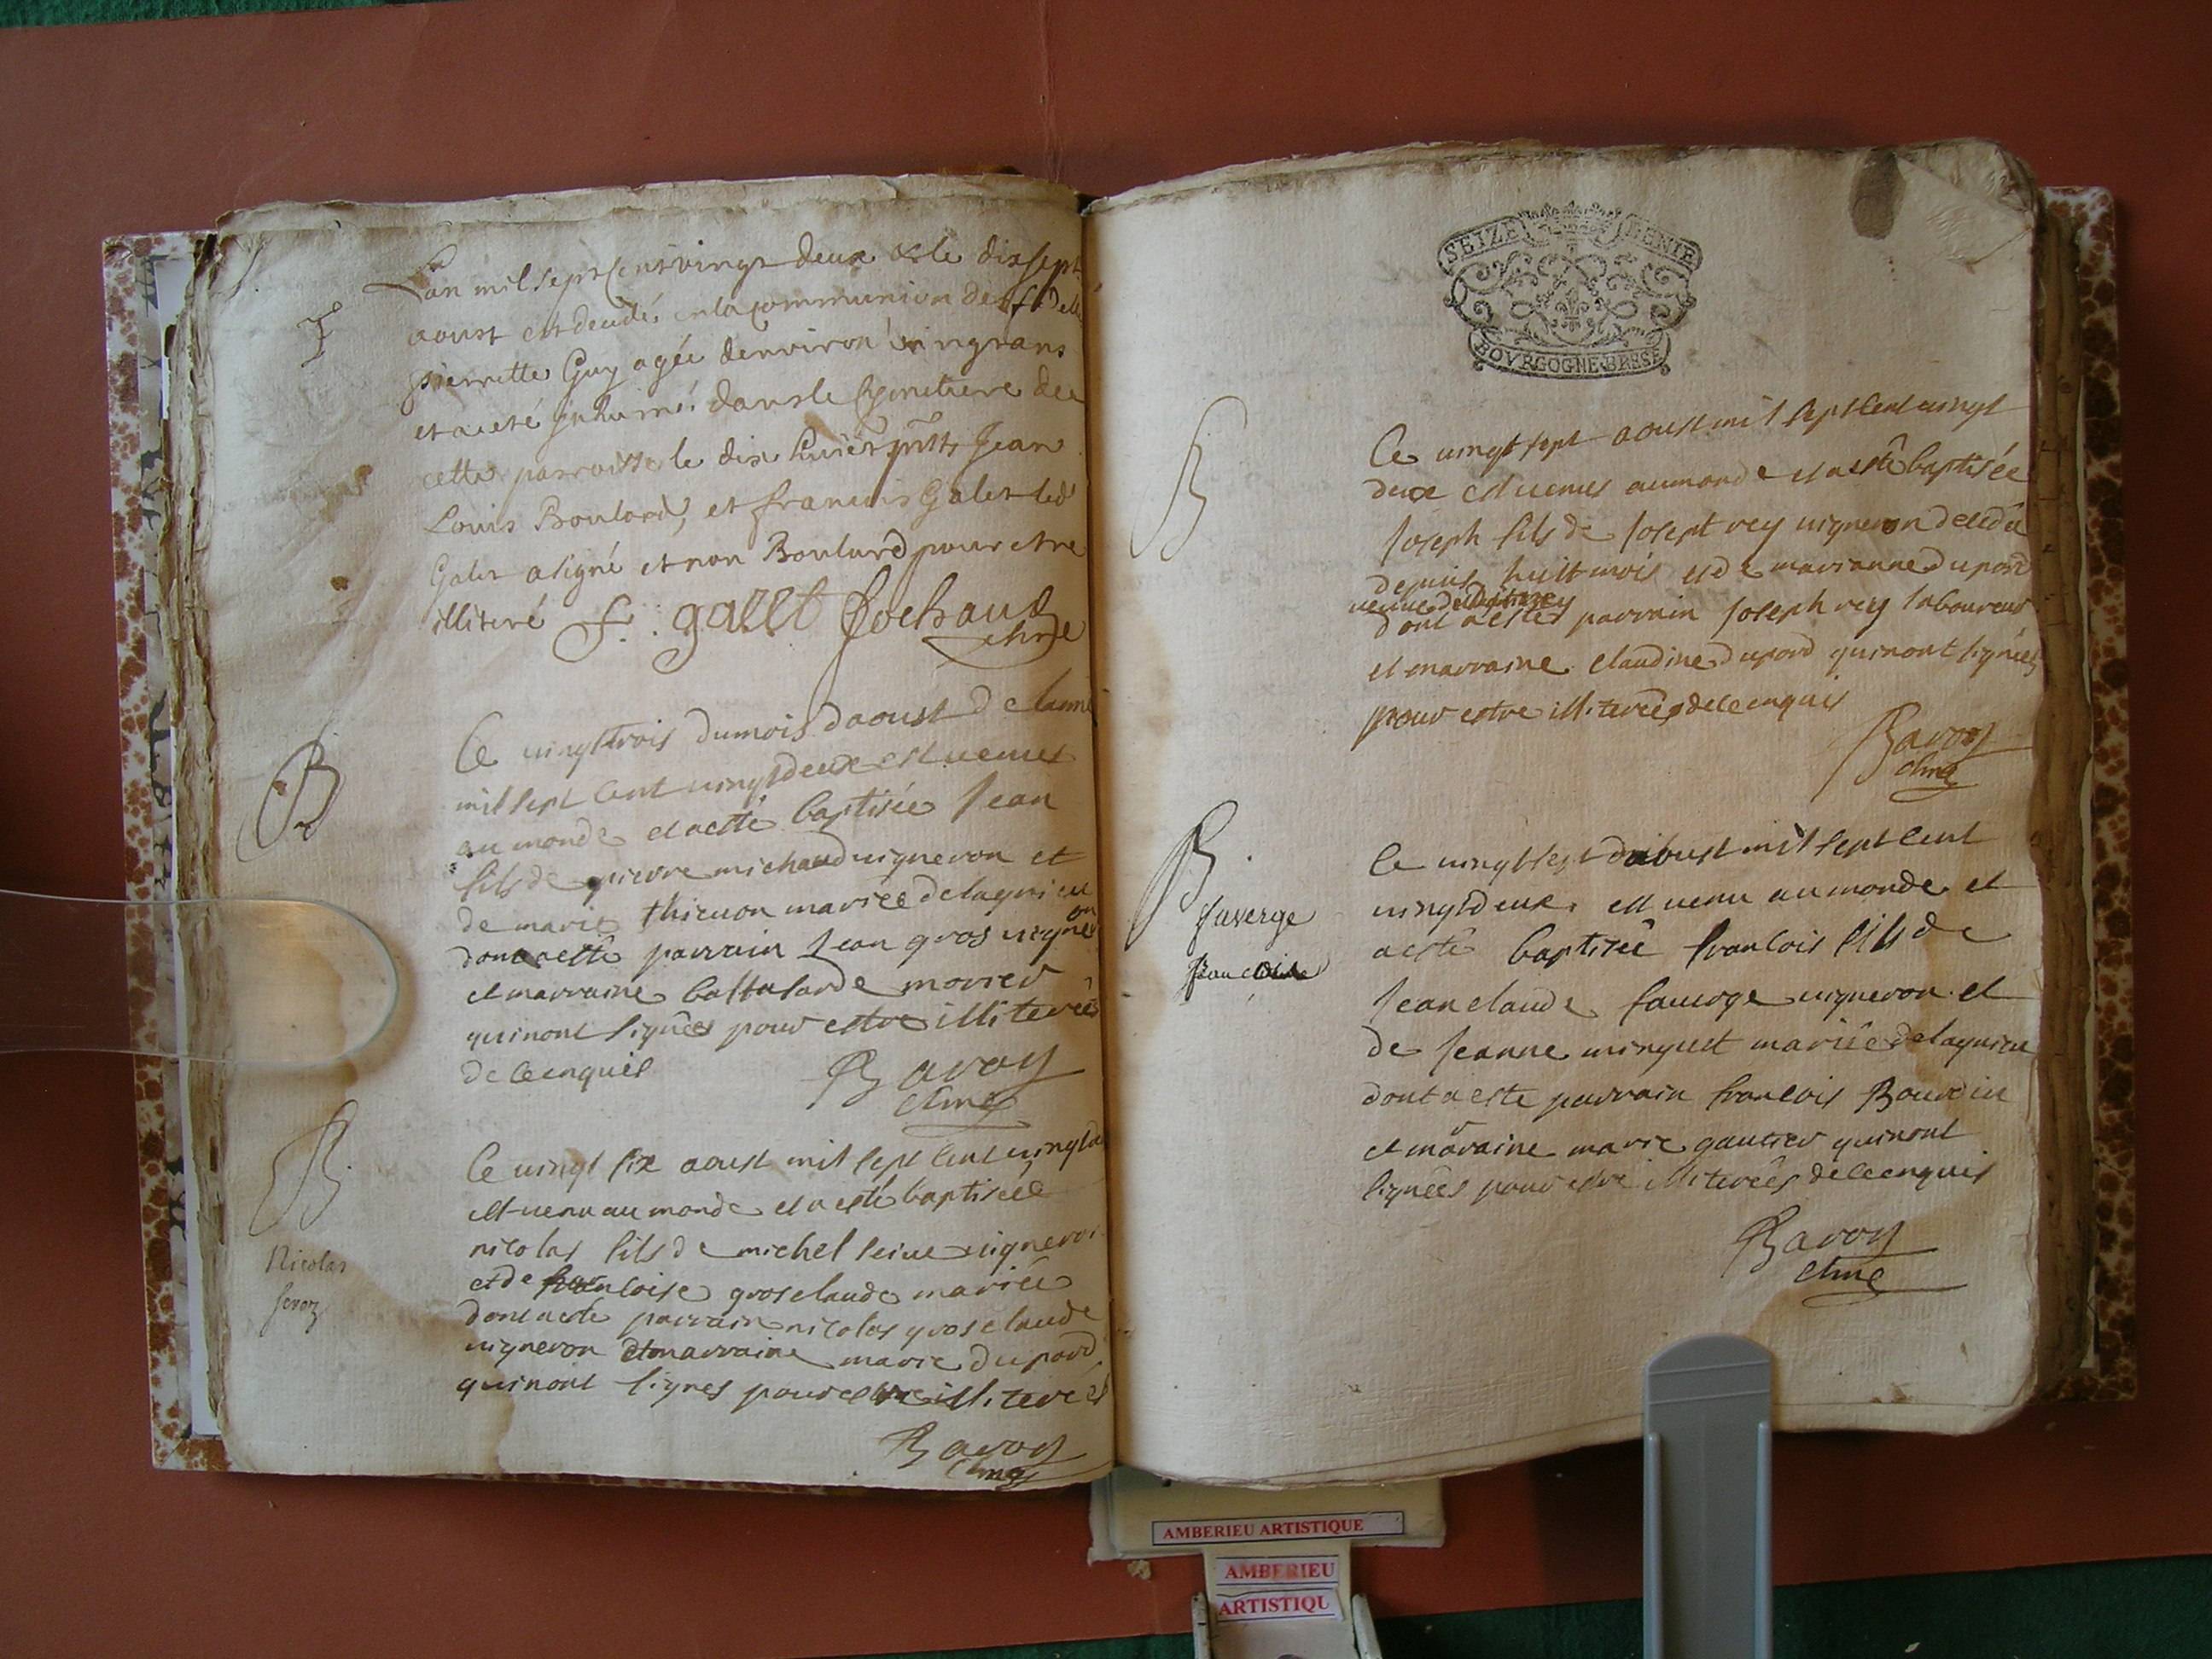 Lan mil sept cent vingt deux & le dix sept
aoust est decedée en la communion des fidelles
pierrette Guy agée denviron vingt ans
et a eté inhumé dans le Cymetiere de
cette parroisse le dix huit Jean
Louis Boulard, et francois Galet led
Galet a signé et non Boulard pour etre
illiteré f. gallet Cochaud
chre
B
Ce vingttrois du mois daoust de lanné
mil sept cent vingtdeux est venus
au monde et a esté baptisée Jean
fils de pierre michaud vigneron et
de marie thievon mariée de lagnieu
dont a esté parrain Jean gros vigneron
et marraine morier
qui nont signées pour estre illiterées
de ce enquis
Bavoy
B
Ce vingt six aoust mil sept cent vingtd
est venu au monde et a esté baptisée
Nicolas
nicolas fils de michel seive vigneron
serve
et de francoise grosclaude mariée
dont a esté parrain nicolas grosclaude
vigneron et marraine marie dupord
qui nont signes pour estre illiterés
Bavoy
SEIZE DENIE
BOVRGOGNE BRESE
B
Ce vingt sept aoust mil sept cent vingt
deux est venus au monde et a esté baptisée
Joseph fils de Joseph rey vigneron decedé
depuis huitt mois et de marianne dupord
veuve dud rey
dont a estés parrain Joseph rey laboureur
et marraine claudine dupord qui nont signées
pour estre illiterées de ce enquis
Bavoy
B
ce vingt sept daoust mil sept cent
vingtdeux est venu au monde et
faverge
a esté baptisée francois fils de
francois
Jean claude faverge vigneron et
de Jeanne minguet mariée de lagnieu
dont a esté parrain francois Bourdin
et maraine marie gautier qui nont
signées pour estre illiterées de ce enquis
Bavoy
AMBERIEU ARTISTIQUE
AMBERIEU
ARTISTIQU